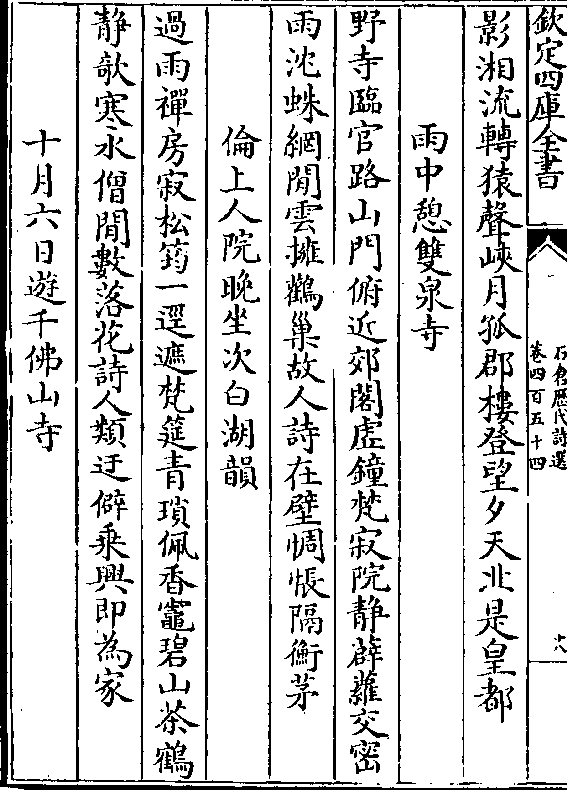 欽定四庫全書
石倉歷代詩選
卷四百五十四
十八
影湘流轉猿聲峽月孤郡樓登望夕天北是皇都
雨中憩雙泉寺
野寺臨官路山門俯近郊閣虛鐘梵寂院静薜蘿交密
雨沈蛛網閒雲擁鸛巢故人詩在壁惆悵隔衡茅
倫上人院晚坐次白湖韻
過雨禪房寂松筠一逕遮梵筵青瑣佩香竈碧山茶鶴
静欹寒水僧閒數落花詩人類迂僻乘興即為家
十月六日遊千佛山寺